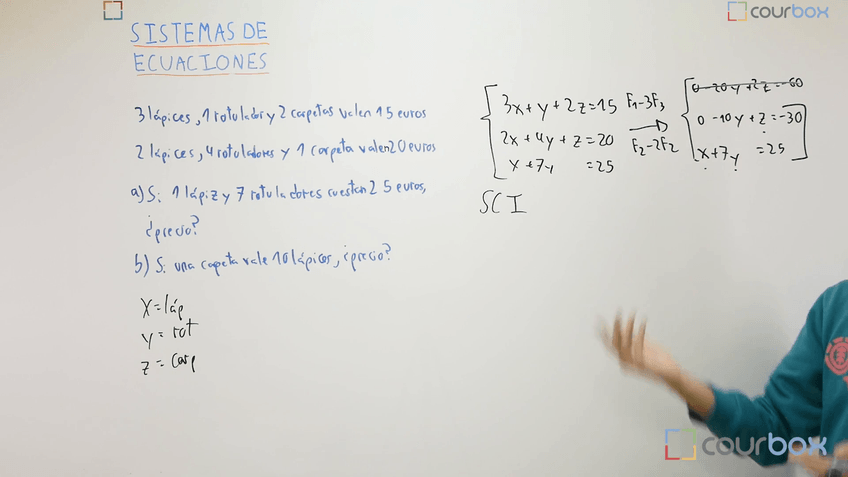 SISTEMAS DE
ECUACIONES
3 lápices, 1 rotulador y 2 carpetas valen 15 euros
2 lápices, 4 rotuladores y 1 carpeta valen 20 euros
a) Si 1 lápiz y 7 rotuladores cuestan 25 euros,
¿precio?
b) Si una carpeta vale 10 lápices, ¿precio?
X = láp
y = rot
z = carp
3x + y + 2z = 15 F1-3F3 0 -20y + 2z = -60
2x + 4y + z = 20 F2-2F2 0 -10y + z = -30
x + 7y = 25 x + 7y = 25
SCI
courbox
courbox